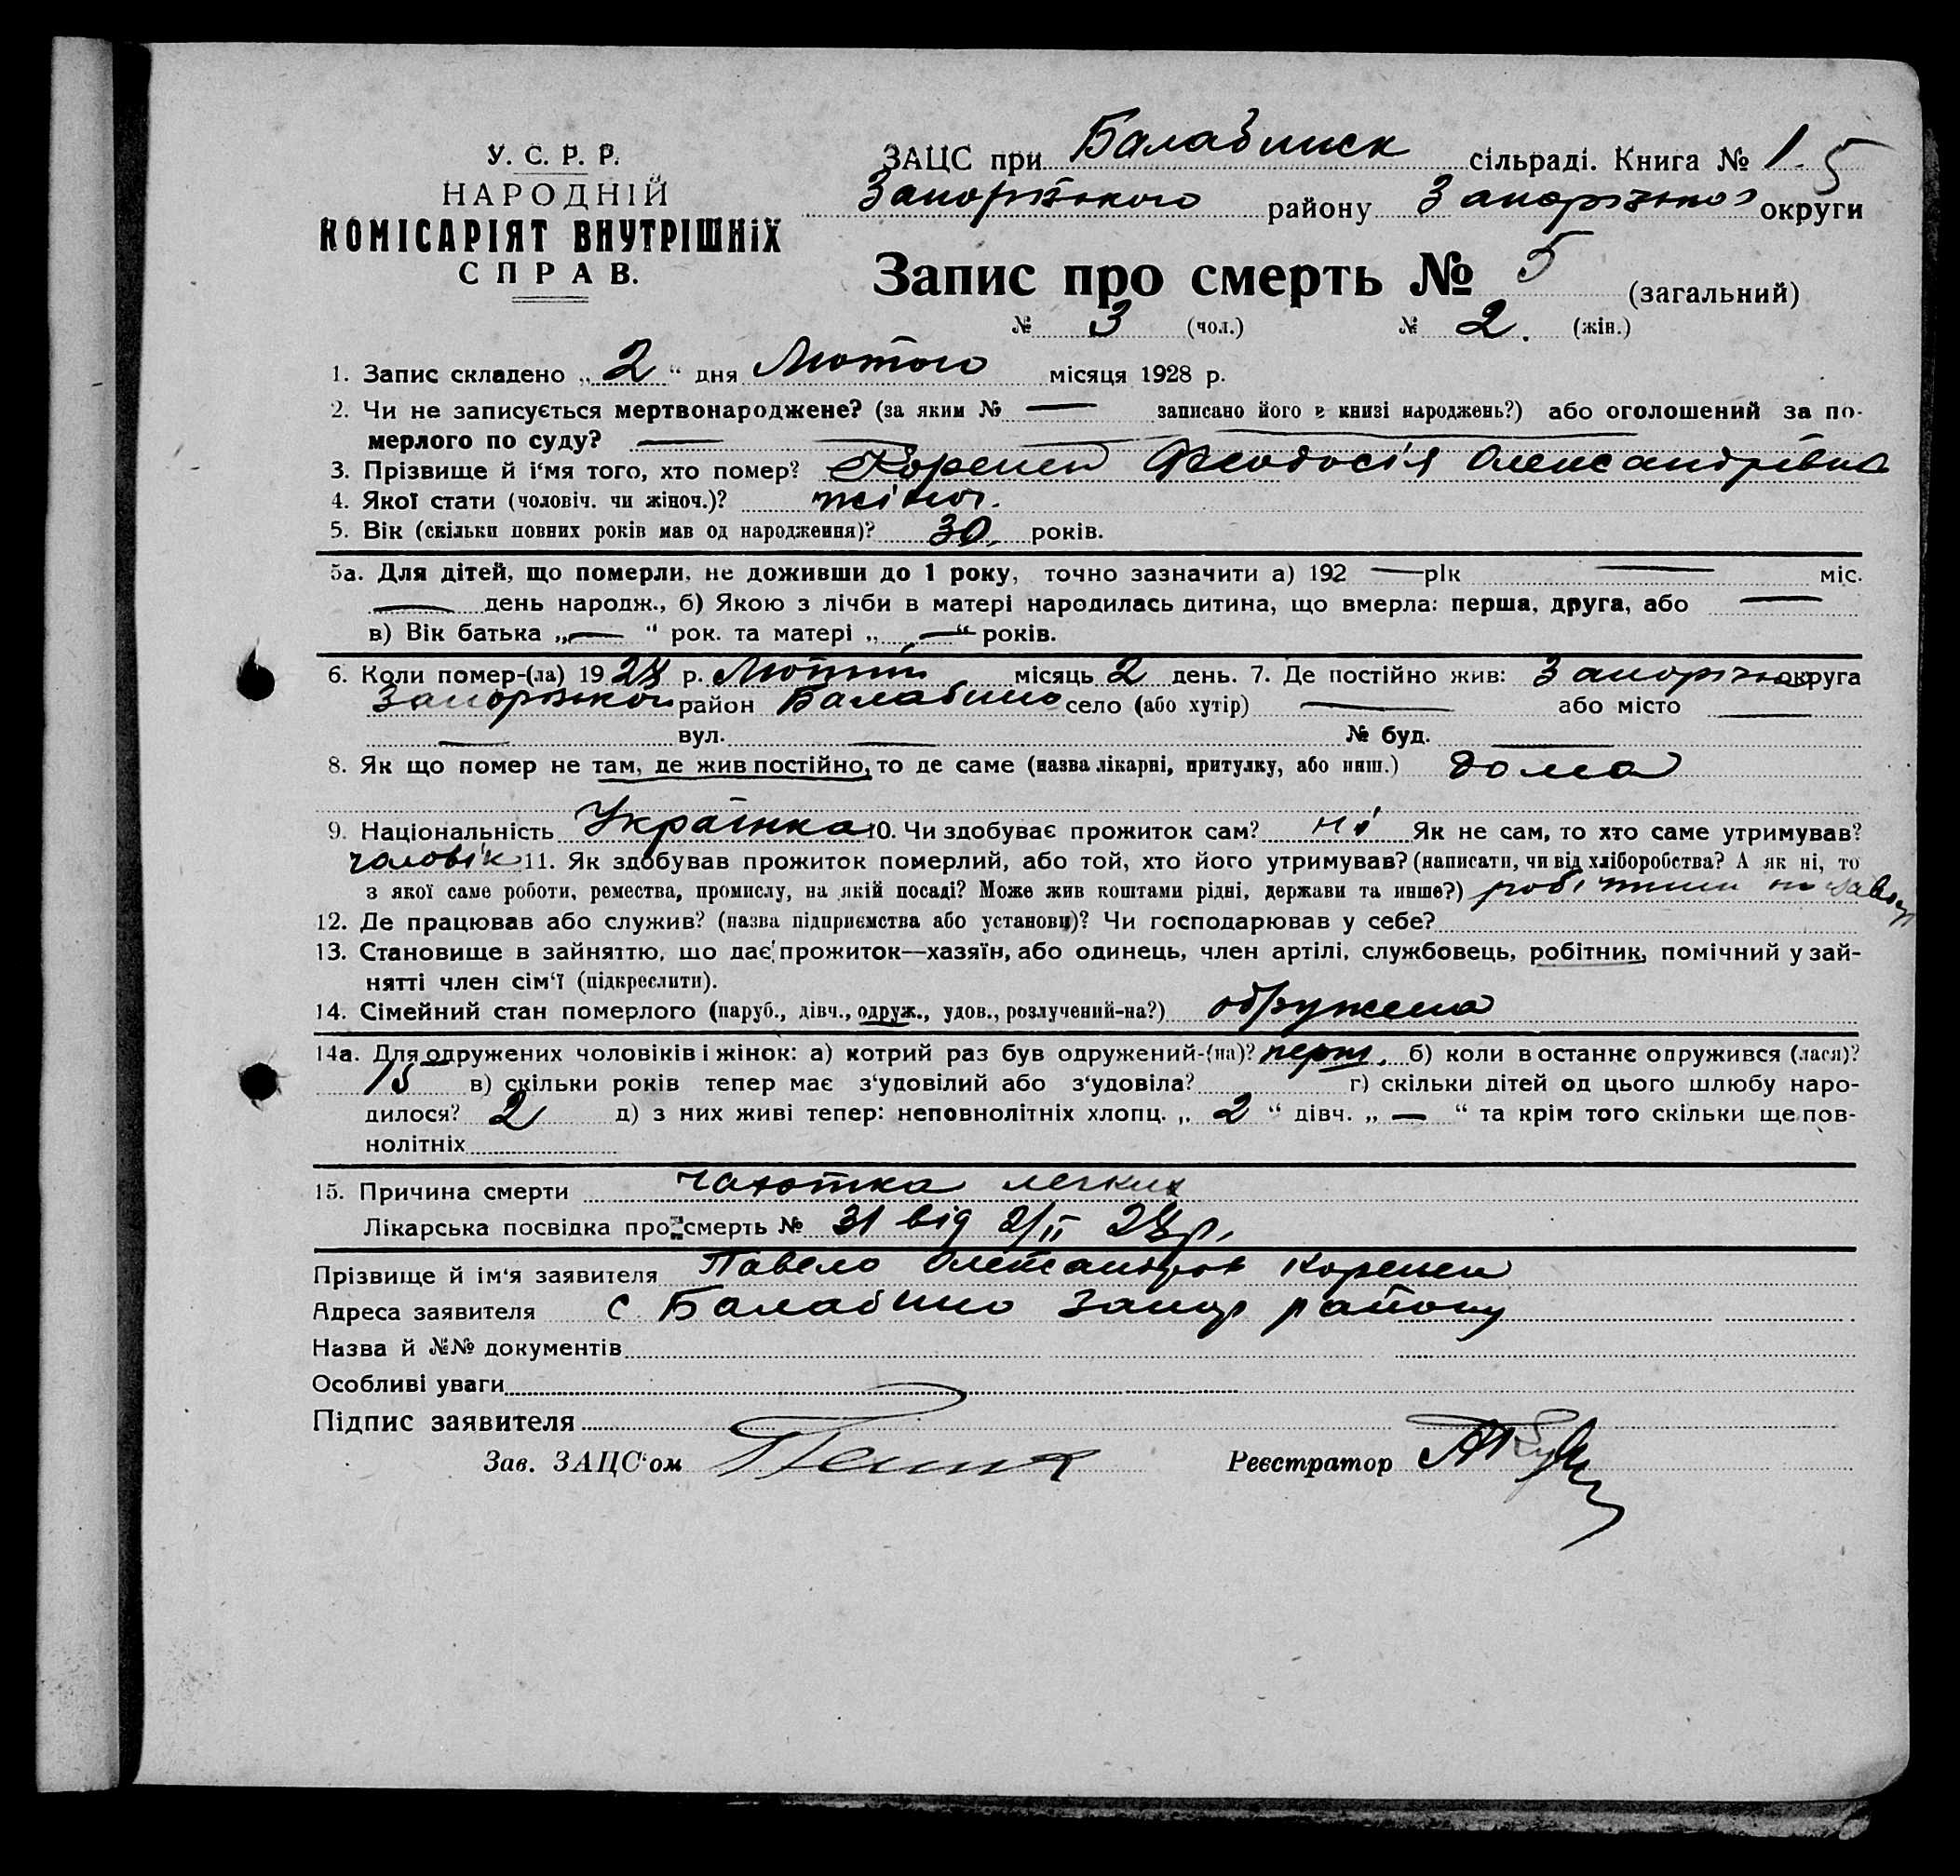 У. С. Р. Р.
НАРОДНІЙ
КОМІСАРІЯТ ВНУТРІШНІХ
СПРАВ.
ЗАЦС при Балабинск сільраді. Книга № 1 5
Запоріжького району Запоріжької округи
Запис про смерть № 5 (загальний)
№ 3 (чол.) № 2. (жін.)
1. Запис складено „ 2 “ дня Лютого місяця 1928 р.
2. Чи не записується мертвонароджене? (за яким № — записано його в книзі народжень?) або оголошений за по-
мерлого по суду? —
3. Прізвище й і‘мя того, хто помер? Феодосія Олександрівна
4. Якої стати (чоловіч. чи жіноч.)? жіноч.
5. Вік (скільки повних років мав од народження)? 30, років.
5а. Для дітей, що померли, не доживши до 1 року, точно зазначити а) 192 — рік — міс.
— день народж., б) Якою з лічби в матері народилась дитина, що вмерла: перша, друга, або —
в) Вік батька „ — “ рок. та матері „ — “ років.
6. Коли помер-(ла) 1928 р. Лютий місяць 2 день. 7. Де постійно жив: округа
район Балабино село (або хутір) — або місто —
— вул. — № буд. —
8. Як що помер не там, де жив постійно, то де саме (назва лікарні, притулку, або инш.) дома
9. Національність Українка 10. Чи здобуває прожиток сам? ні Як не сам, то хто саме утримував?
чоловік 11. Як здобував прожиток померлий, або той, хто його утримував? (написати, чи від хліборобства? А як ні, то
з якої саме роботи, ремества, промислу, на якій посаді? Може жив коштами рідні, держави та инше?)
12. Де працював або служив? (назва підприємства або установи)? Чи господарював у себе?
13. Становище в зайняттю, що дає прожиток—хазяїн, або одинець, член артілі, службовець, робітник, помічний у зай-
нятті член сім‘ї (підкреслити).
14. Сімейний стан померлого (паруб., дівч., одруж., удов., розлучений-на?) одружена
14а. Для одружених чоловіків і жінок: а) котрий раз був одружений-(на)? перш. б) коли в останнє одружився (лася)?
15 в) скільки років тепер має з‘удовілий або з‘удовіла? г) скільки дітей од цього шлюбу наро-
дилося? 2 д) з них живі тепер: неповнолітніх хлопц. „ 2 “ дівч. „ — “ та крім того скільки ще пов-
нолітніх
15. Причина смерти чахотка легких
Лікарська посвідка про смерть № 31 від 2/II 28 р.
Прізвище й ім‘я заявителя Павело Олександров Коренен
Адреса заявителя с Балабино Запор району
Назва й №№ документів
Особливі уваги
Підпис заявителя
Зав. ЗАЦС‘ом
Реєстратор